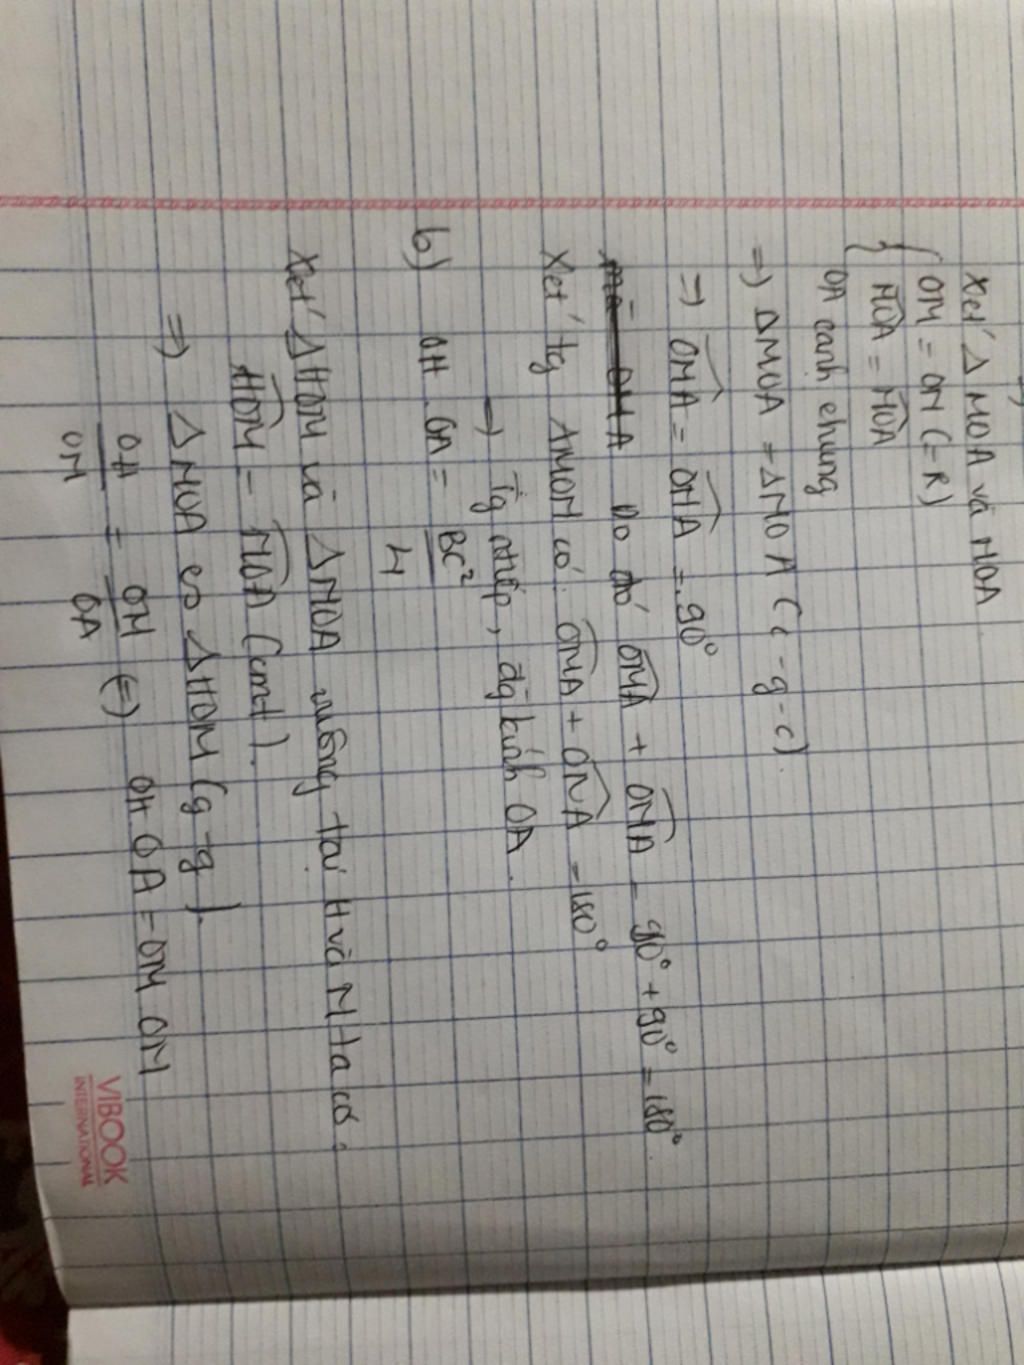 Xét Δ MOA và NOA
{ OM = ON (=R)
MOA = NOA
OA cạnh chung
=> ΔMOA = ΔNOA (c-g-c).
=> OMA = ONA = 90°
Do đó OMA + ONA = 90° + 90° = 180°
Xét tg AMON có: OMA + ONA = 180°
=> Tg ntiếp, đg kính OA.
b) OH . OA = BC²/4
Xét ΔHOM và ΔMOA vuông tại H và M ta có:
HOM = MOA (cmt).
=> Δ MOA ∽ ΔHOM (g-g).
OH OA = OM OM
VIBOOK
INTERNATIONAL